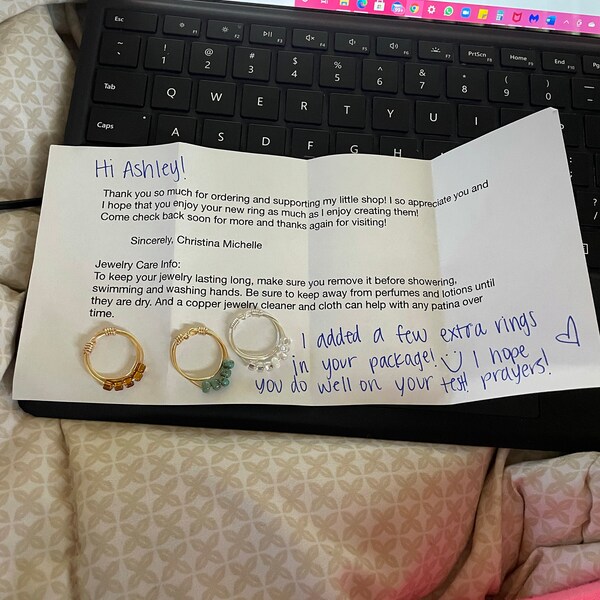 Esc F1 F2 F3 F4 F5 F6 F7 PrtScn Home End F10
~ ` ! 1 @ 2 # 3 $ 4 % 5 ^ 6 & 7 * 8 ( 9 ) 0
Tab Q W E R T Y U I
Caps A S D F G H
Hi Ashley!
Thank you so much for ordering and supporting my little shop! I so appreciate you and
I hope that you enjoy your new ring as much as I enjoy creating them!
Come check back soon for more and thanks again for visiting!
Sincerely, Christina Michelle
Jewelry Care Info:
To keep your jewelry lasting long, make sure you remove it before showering,
swimming and washing hands. Be sure to keep away from perfumes and lotions until
they are dry. And a copper jewelry cleaner and cloth can help with any patina over
time.
I added a few extra rings
in your package! I hope
you do well on your test prayers!